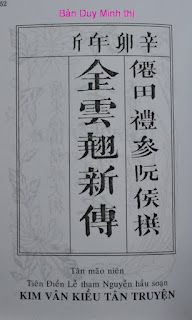 52
Bản Duy Minh thị
辛卯年
僊田禮參阮侯撰
金雲翹新傳
Tân mão niên
Tiên Điền Lễ tham Nguyễn hầu soạn
KIM VÂN KIỀU TÂN TRUYỆN